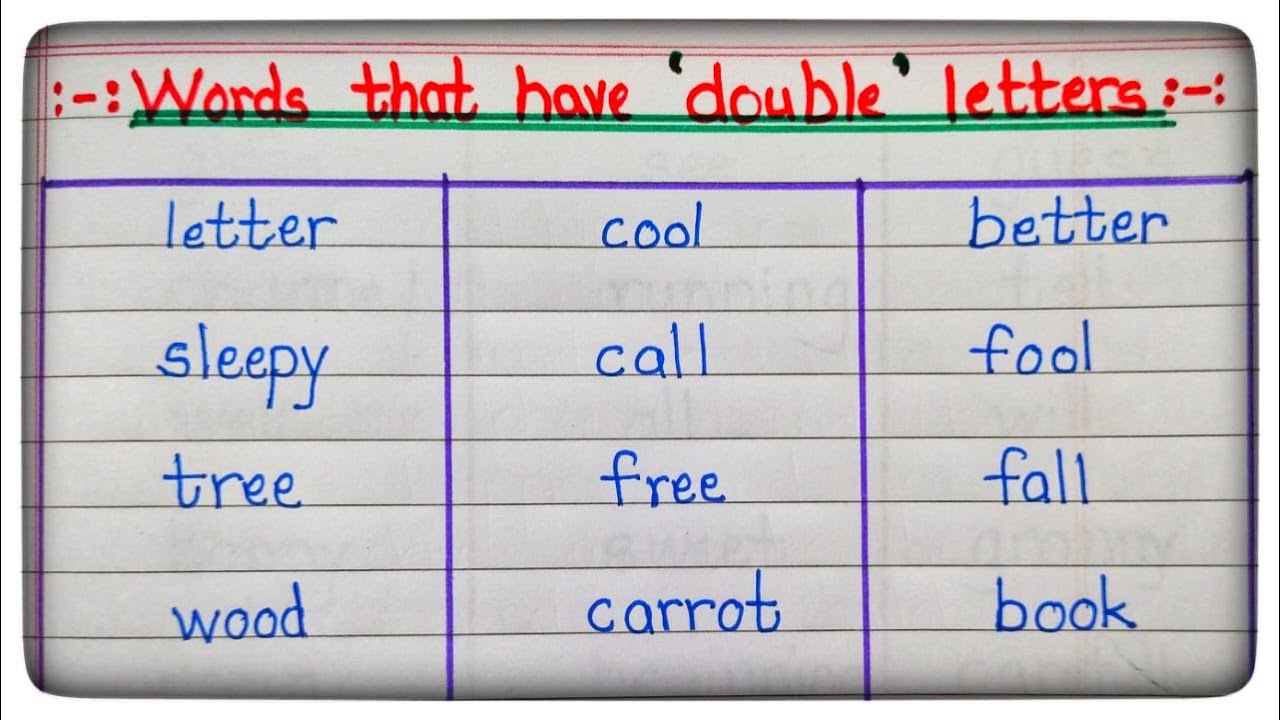 :-: Words that have 'double' letters :-:
letter cool better
sleepy call fool
tree free fall
wood carrot book